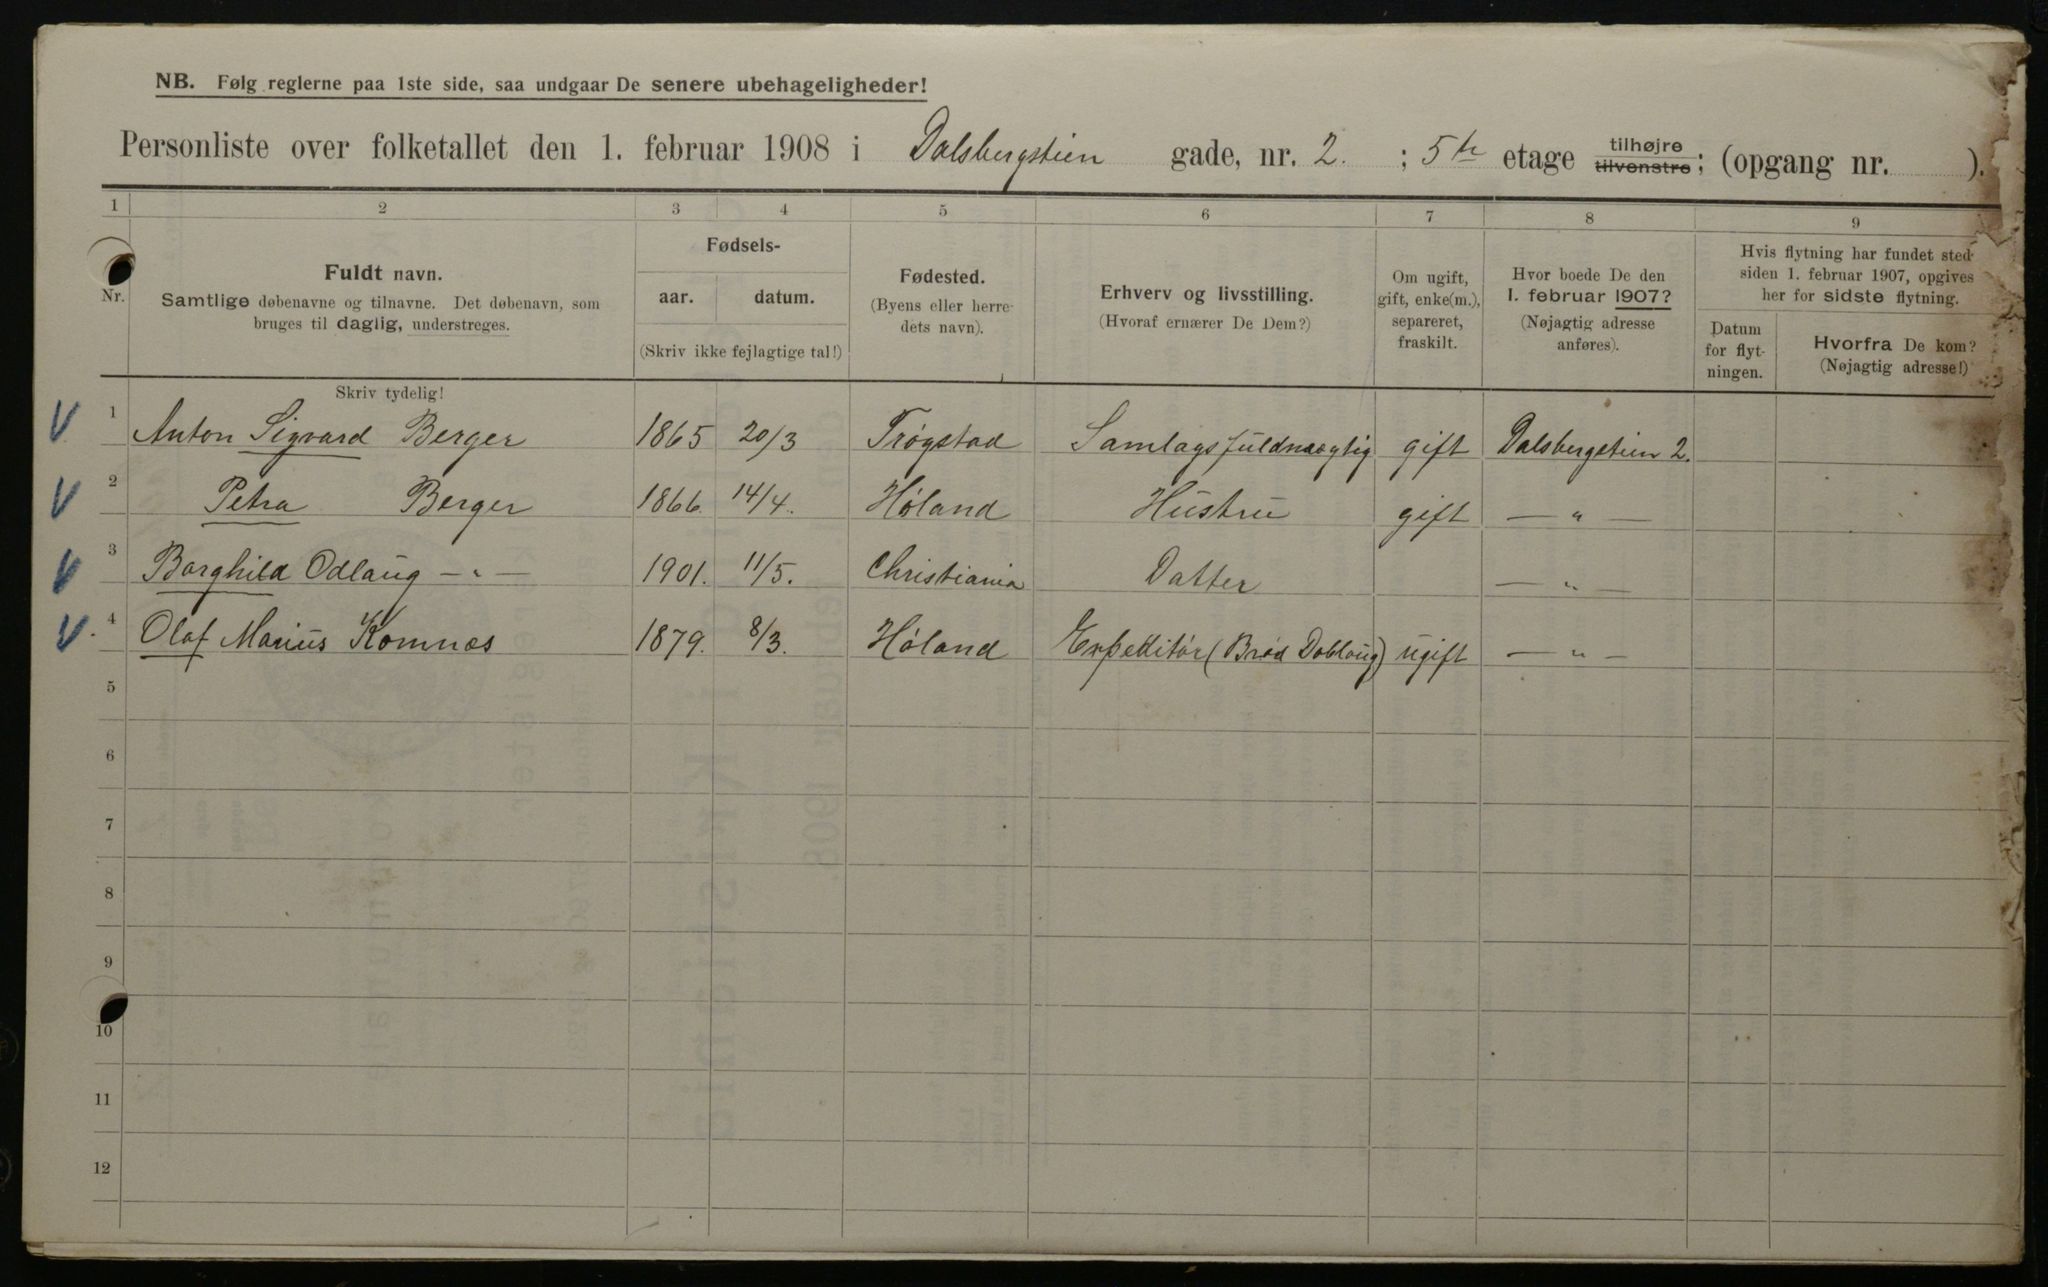 NB. Følg reglerne paa 1ste side, saa undgaar De senere ubehageligheder!
Personliste over folketallet den 1. februar 1908 i Dalsbergstien gade, nr. 2. ; 5te etage tilhøjre tilvenstre; (opgang nr. ).
1 2 3 4 5 6 7 8 9
Nr.
Fuldt navn.
Samtlige døbenavne og tilnavne. Det døbenavn, som
bruges til daglig, understreges.
Fødsels-
aar. datum.
(Skriv ikke fejlagtige tal!)
Fødested.
(Byens eller herre-
dets navn).
Erhverv og livsstilling.
(Hvoraf ernærer De Dem?)
Om ugift,
gift, enke(m.),
separeret,
fraskilt.
Hvor boede De den
1. februar 1907?
(Nøjagtig adresse
anføres).
Hvis flytning har fundet sted
siden 1. februar 1907, opgives
her for sidste flytning.
Datum
for flyt-
ningen.
Hvorfra De kom?
(Nøjagtig adresse!)
Skriv tydelig!
V 1 Anton Sigvard Berger 1865 20/3 Trøgstad Samlagsfuldmægtig gift Dalsbergstien 2.
V 2 Petra Berger 1866. 14/4. Høland Hustru gift — " —
V 3 Borghild Odlaug — " — 1901. 11/5. Christiania Datter — " —
V. 4 Olaf Marius Komnæs 1879. 8/3. Høland Expeditør (Brød Dobloug) ugift — " —
5
6
7
8
9
10
11
12